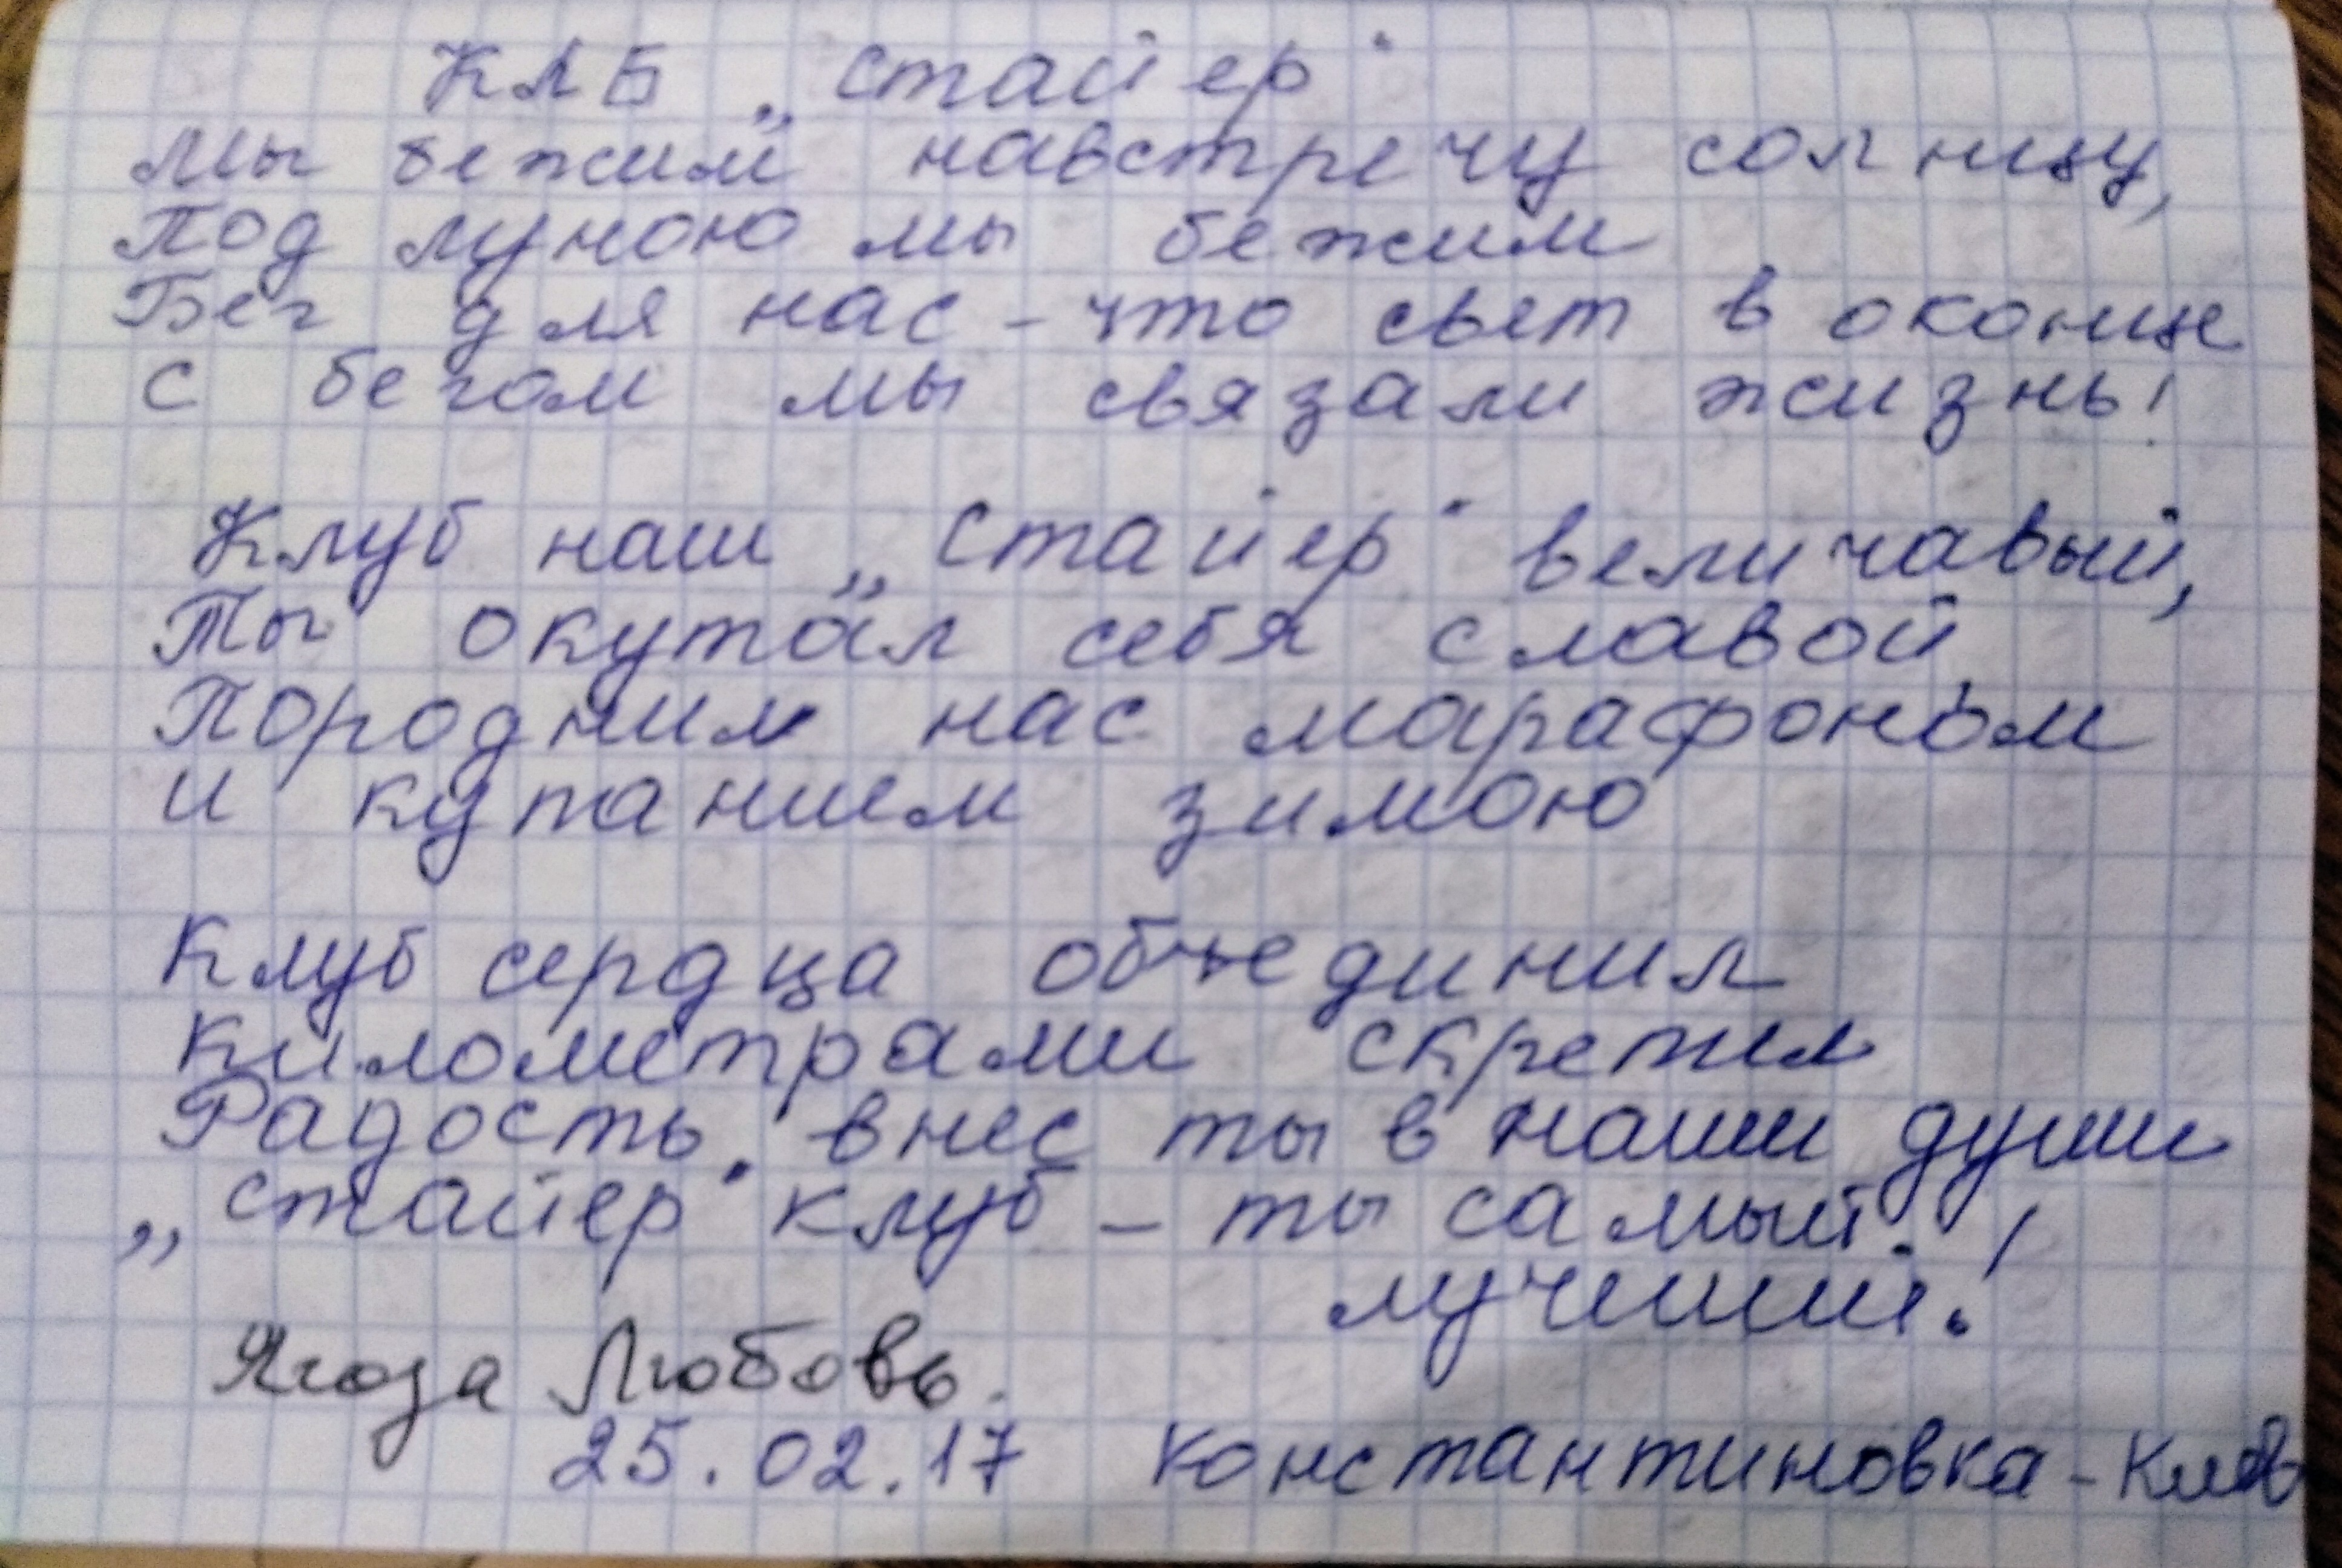 КЛБ „Стайер"
Мы бежим навстречу солнцу,
Под луною мы бежим
Бег для нас - что свет в оконце
С бегом мы связали жизнь!
Клуб наш „Стайер" величавый,
Ты окутал себя славой,
Породнил нас марафоном
и купанием зимою
Клуб сердца объединил
Километрами скрепил
Радость внес ты в наши души
„Стайер" клуб - ты самый
лучший!
Ягоза Любовь.
25.02.17 Константиновка - Киев